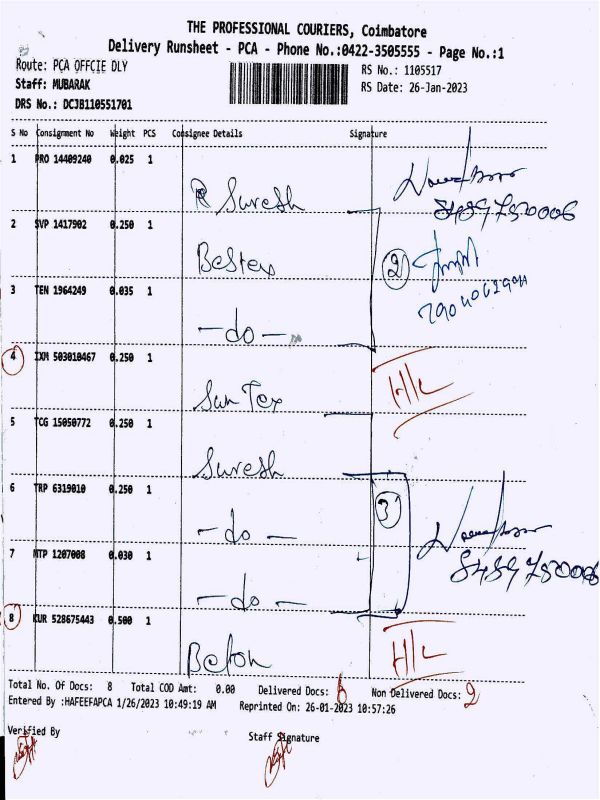 THE PROFESSIONAL COURIERS, Coimbatore
Delivery Runsheet - PCA - Phone No.:0422-3505555 - Page No.:1
Route: PCA OFFCIE DLY
RS No.: 1105517
Staff: MUBARAK
RS Date: 26-Jan-2023
DRS No.: DCJB110551701
S No Consignment No Weight PCS Consignee Details Signature
1 PRO 14409240 0.025 1
R Suresh
8489750006
2 SVP 1417902 0.250 1
Bestex
2
3 TEN 1964249 0.035 1
-do-
4 IXM 503010467 0.250 1
Sun Tex
H/L
5 TCG 15050772 0.250 1
Suresh
6 TRP 6319010 0.250 1
-do-
3
7 MTP 1207008 0.030 1
-do-
8489750006
8 KUR 528675443 0.500 1
H/L
Total No. Of Docs: 8 Total COD Amt: 0.00 Delivered Docs: 6 Non Delivered Docs: 2
Entered By :HAFEEFAPCA 1/26/2023 10:49:19 AM Reprinted On: 26-01-2023 10:57:26
Verified By
Staff Signature